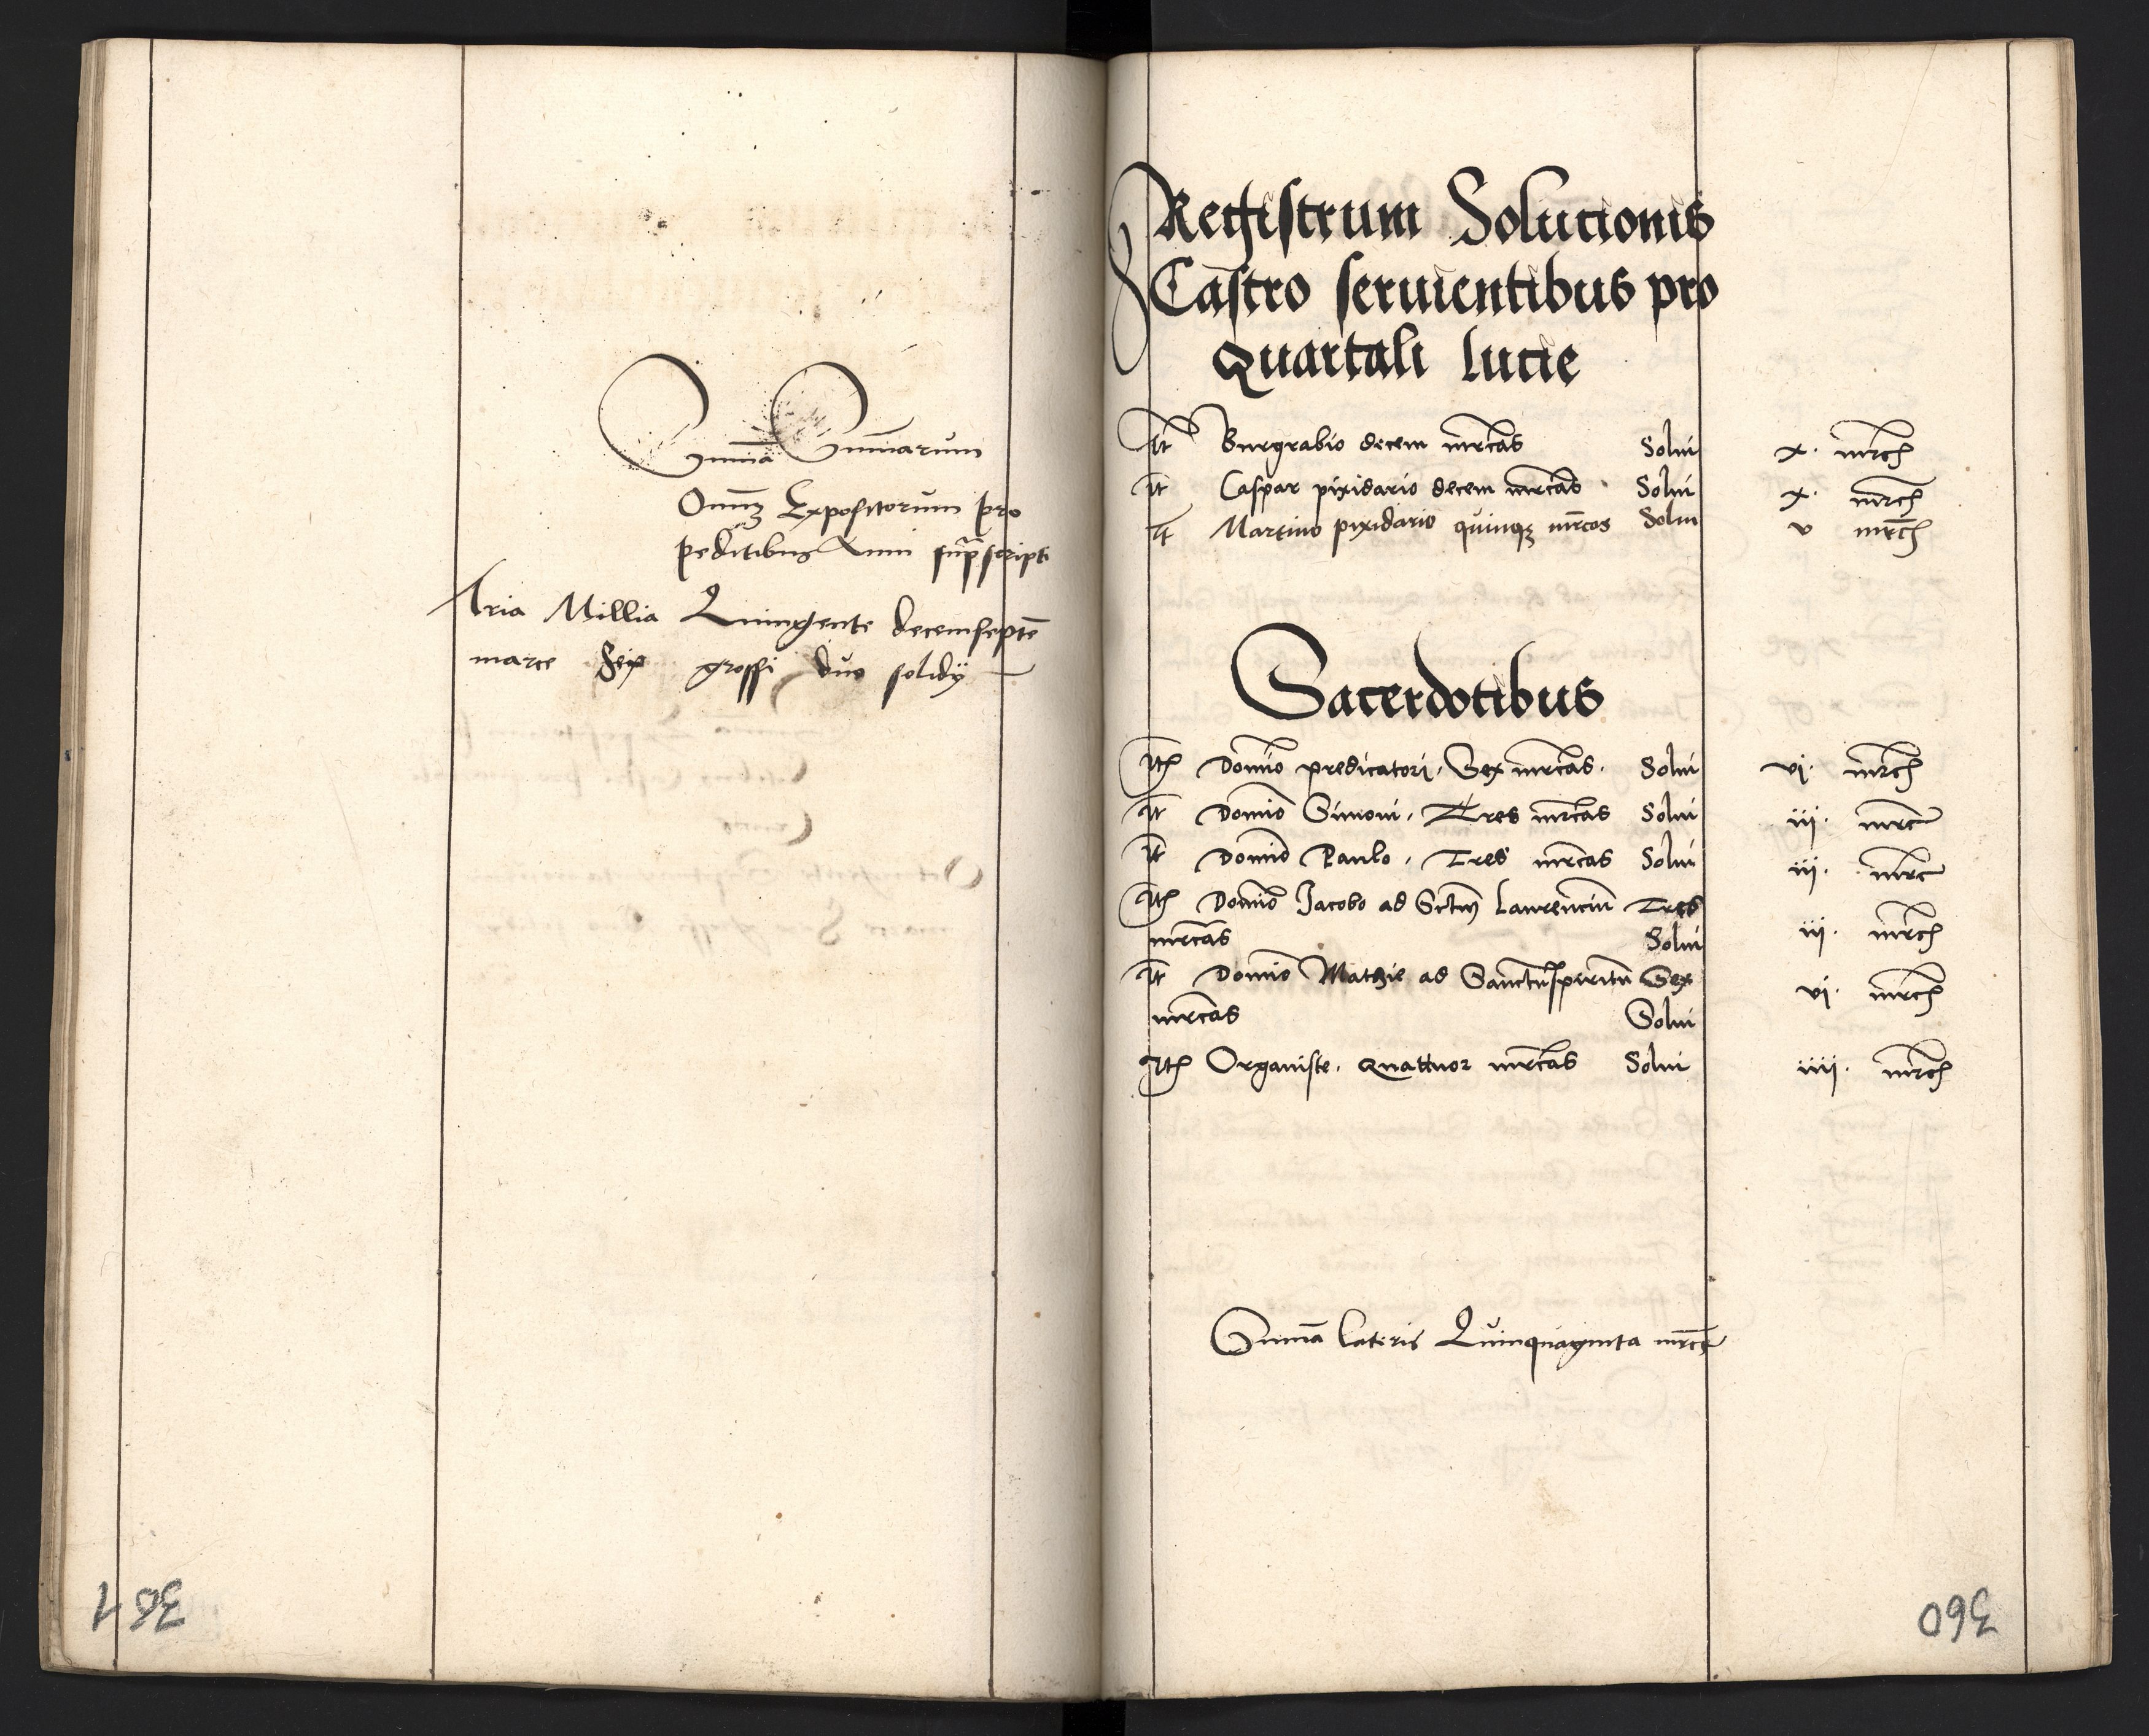 Sum̄a Sum̄arum
Om̄iū Expositorum pro
peditibus Anni sup̄ scripti
Tria Millia Quingente decemsepte͂
marce Sex grossi duo solidÿ
361
Registrum Solucionis
Castro seruientibus pro
Quartali lucie
It Burgrabio decem mrcas Solui x. mrch
It Caspar pixidario decem mrcas. Solui x. mrch
It Martino pixidario quinqȝ mrcas Solui v mrch
Sacerdotibus
Itm Domino predicatori. Sex mrcas. Solui vi. mrch
It Domino Simoni. Tres mrcas Solui iii. mrc
It Domino Paulo. Tres mrcas Solui iii. mrc
Itm Domino Jacobo ad Sctm̄ Laurenciū Tres
mrcas Solui iii. mrch
It Domino Mathie ad Sanctūspiritū Sex
mrcas Solui vi. mrch
Itm Organiste. Quattuor mrcas Solui iiii. mrch
Sum̄a lateris Quinquaginta mrce
360